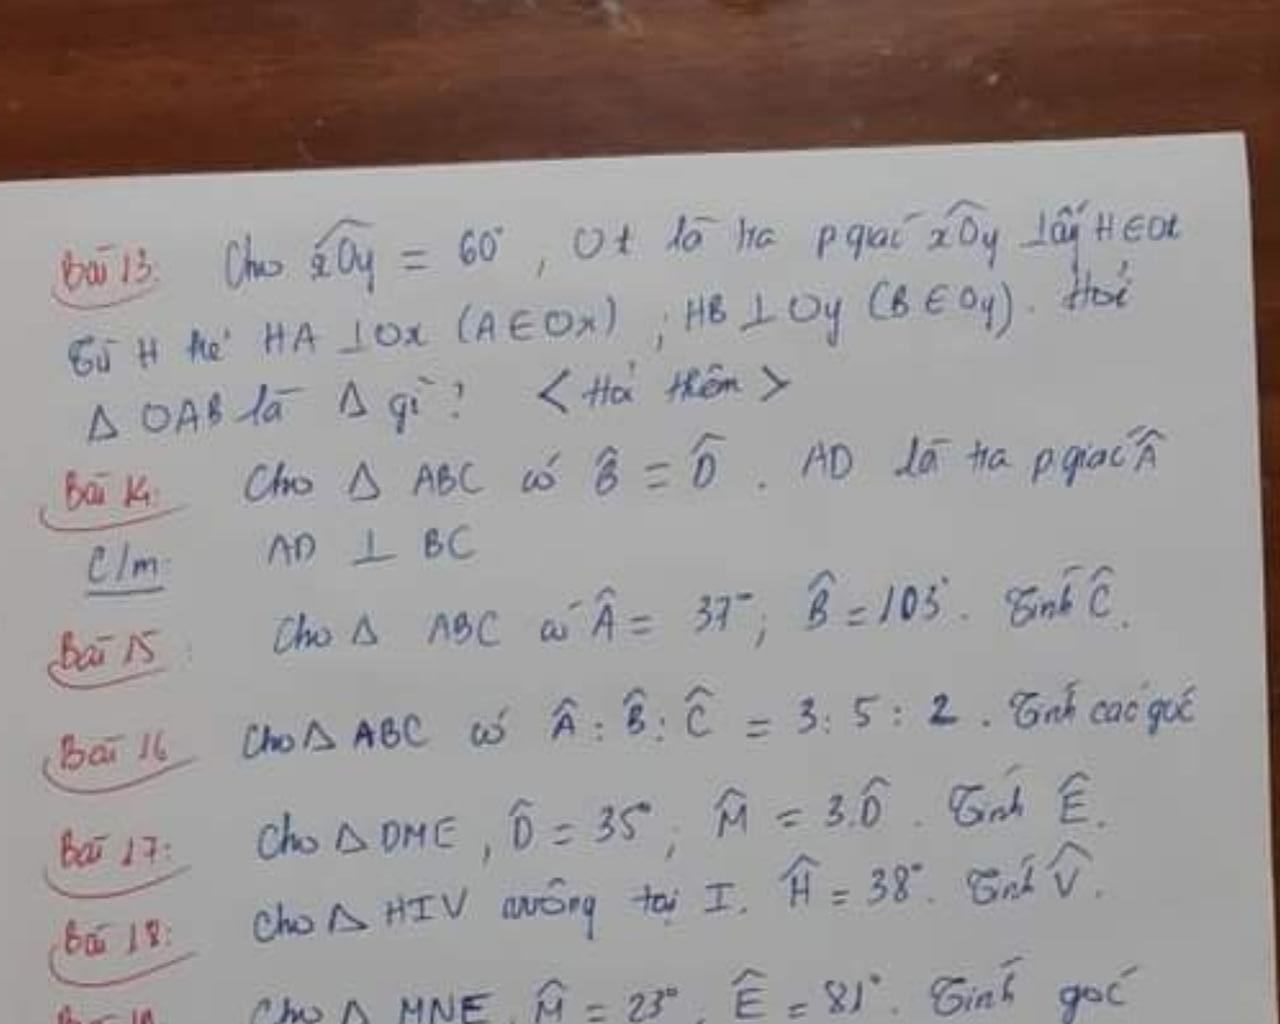 Bài 13: Cho xOy = 60°, Ot là tia p giác xOy lấy H ∈ Ot
Từ H kẻ HA ⊥ Ox (A ∈ Ox), HB ⊥ Oy (B ∈ Oy). Hỏi
Δ OAB là Δ gì? < Hỏi thêm >
Bài 14: Cho Δ ABC có B̂ = D̂. AD là tia p giác Â
C/m: AD ⊥ BC
Bài 15: Cho Δ ABC có Â = 37°; B̂ = 103°. Tính Ĉ.
Bài 16 Cho Δ ABC có Â : B̂ : Ĉ = 3 : 5 : 2. Tính các góc
Bài 17: Cho Δ DME, D̂ = 35°; M̂ = 3.D̂. Tính Ê.
Bài 18: Cho Δ HIV vuông tại I. Ĥ = 38°. Tính V̂.
Cho Δ MNE, M̂ = 23°, Ê = 81°. Tính góc